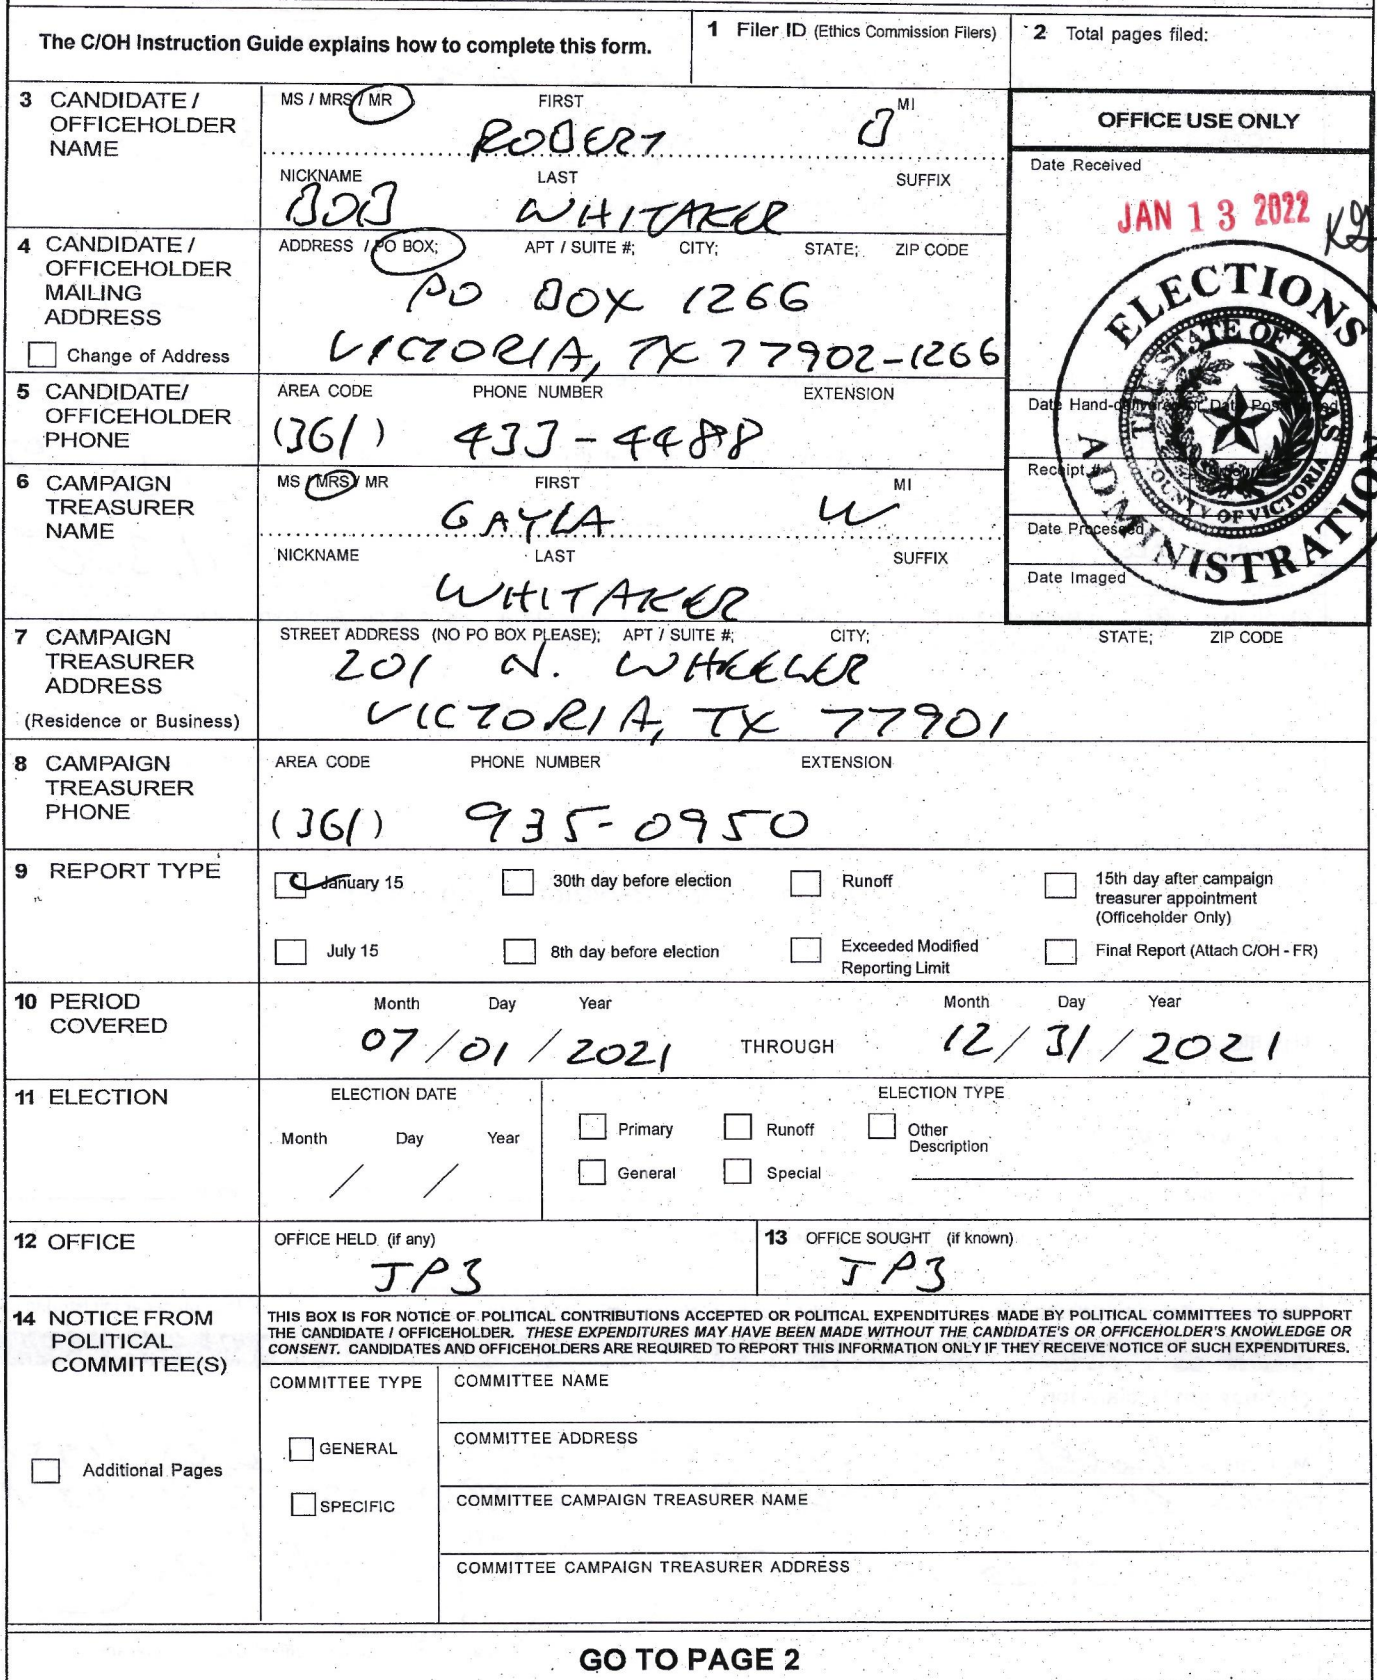 The C/OH Instruction Guide explains how to complete this form.
1 Filer ID (Ethics Commission Filers)
2 Total pages filed:
3 CANDIDATE / OFFICEHOLDER NAME
MS / MRS / MR FIRST MI
ROBERT
NICKNAME LAST SUFFIX
BOB WHITAKER
OFFICE USE ONLY
Date Received
JAN 13 2022
ELECTIONS ADMINISTRATION
THE STATE OF TEXAS
COUNTY OF VICTORIA
Date Hand-delivered or Date Postmarked
Receipt #
Date Processed
Date Imaged
4 CANDIDATE / OFFICEHOLDER MAILING ADDRESS
Change of Address
ADDRESS / PO BOX; APT / SUITE #; CITY; STATE; ZIP CODE
PO BOX 1266
VICTORIA, TX 77902-1266
5 CANDIDATE/ OFFICEHOLDER PHONE
AREA CODE PHONE NUMBER EXTENSION
(361) 433-4488
6 CAMPAIGN TREASURER NAME
MS / MRS / MR FIRST MI
GAYLA W
NICKNAME LAST SUFFIX
WHITAKER
7 CAMPAIGN TREASURER ADDRESS
(Residence or Business)
STREET ADDRESS (NO PO BOX PLEASE); APT / SUITE #; CITY; STATE; ZIP CODE
201 N. WHEELER
VICTORIA, TX 77901
8 CAMPAIGN TREASURER PHONE
AREA CODE PHONE NUMBER EXTENSION
(361) 935-0950
9 REPORT TYPE
January 15 30th day before election Runoff 15th day after campaign treasurer appointment (Officeholder Only)
July 15 8th day before election Exceeded Modified Reporting Limit Final Report (Attach C/OH - FR)
10 PERIOD COVERED
Month Day Year Month Day Year
07 / 01 / 2021 THROUGH 12 / 31 / 2021
11 ELECTION
ELECTION DATE
Month Day Year
/ /
ELECTION TYPE
Primary Runoff Other Description
General Special
12 OFFICE
OFFICE HELD (if any)
JP3
13 OFFICE SOUGHT (if known)
JP3
14 NOTICE FROM POLITICAL COMMITTEE(S)
Additional Pages
THIS BOX IS FOR NOTICE OF POLITICAL CONTRIBUTIONS ACCEPTED OR POLITICAL EXPENDITURES MADE BY POLITICAL COMMITTEES TO SUPPORT
THE CANDIDATE / OFFICEHOLDER. THESE EXPENDITURES MAY HAVE BEEN MADE WITHOUT THE CANDIDATE'S OR OFFICEHOLDER'S KNOWLEDGE OR
CONSENT. CANDIDATES AND OFFICEHOLDERS ARE REQUIRED TO REPORT THIS INFORMATION ONLY IF THEY RECEIVE NOTICE OF SUCH EXPENDITURES.
COMMITTEE TYPE
GENERAL
SPECIFIC
COMMITTEE NAME
COMMITTEE ADDRESS
COMMITTEE CAMPAIGN TREASURER NAME
COMMITTEE CAMPAIGN TREASURER ADDRESS
GO TO PAGE 2